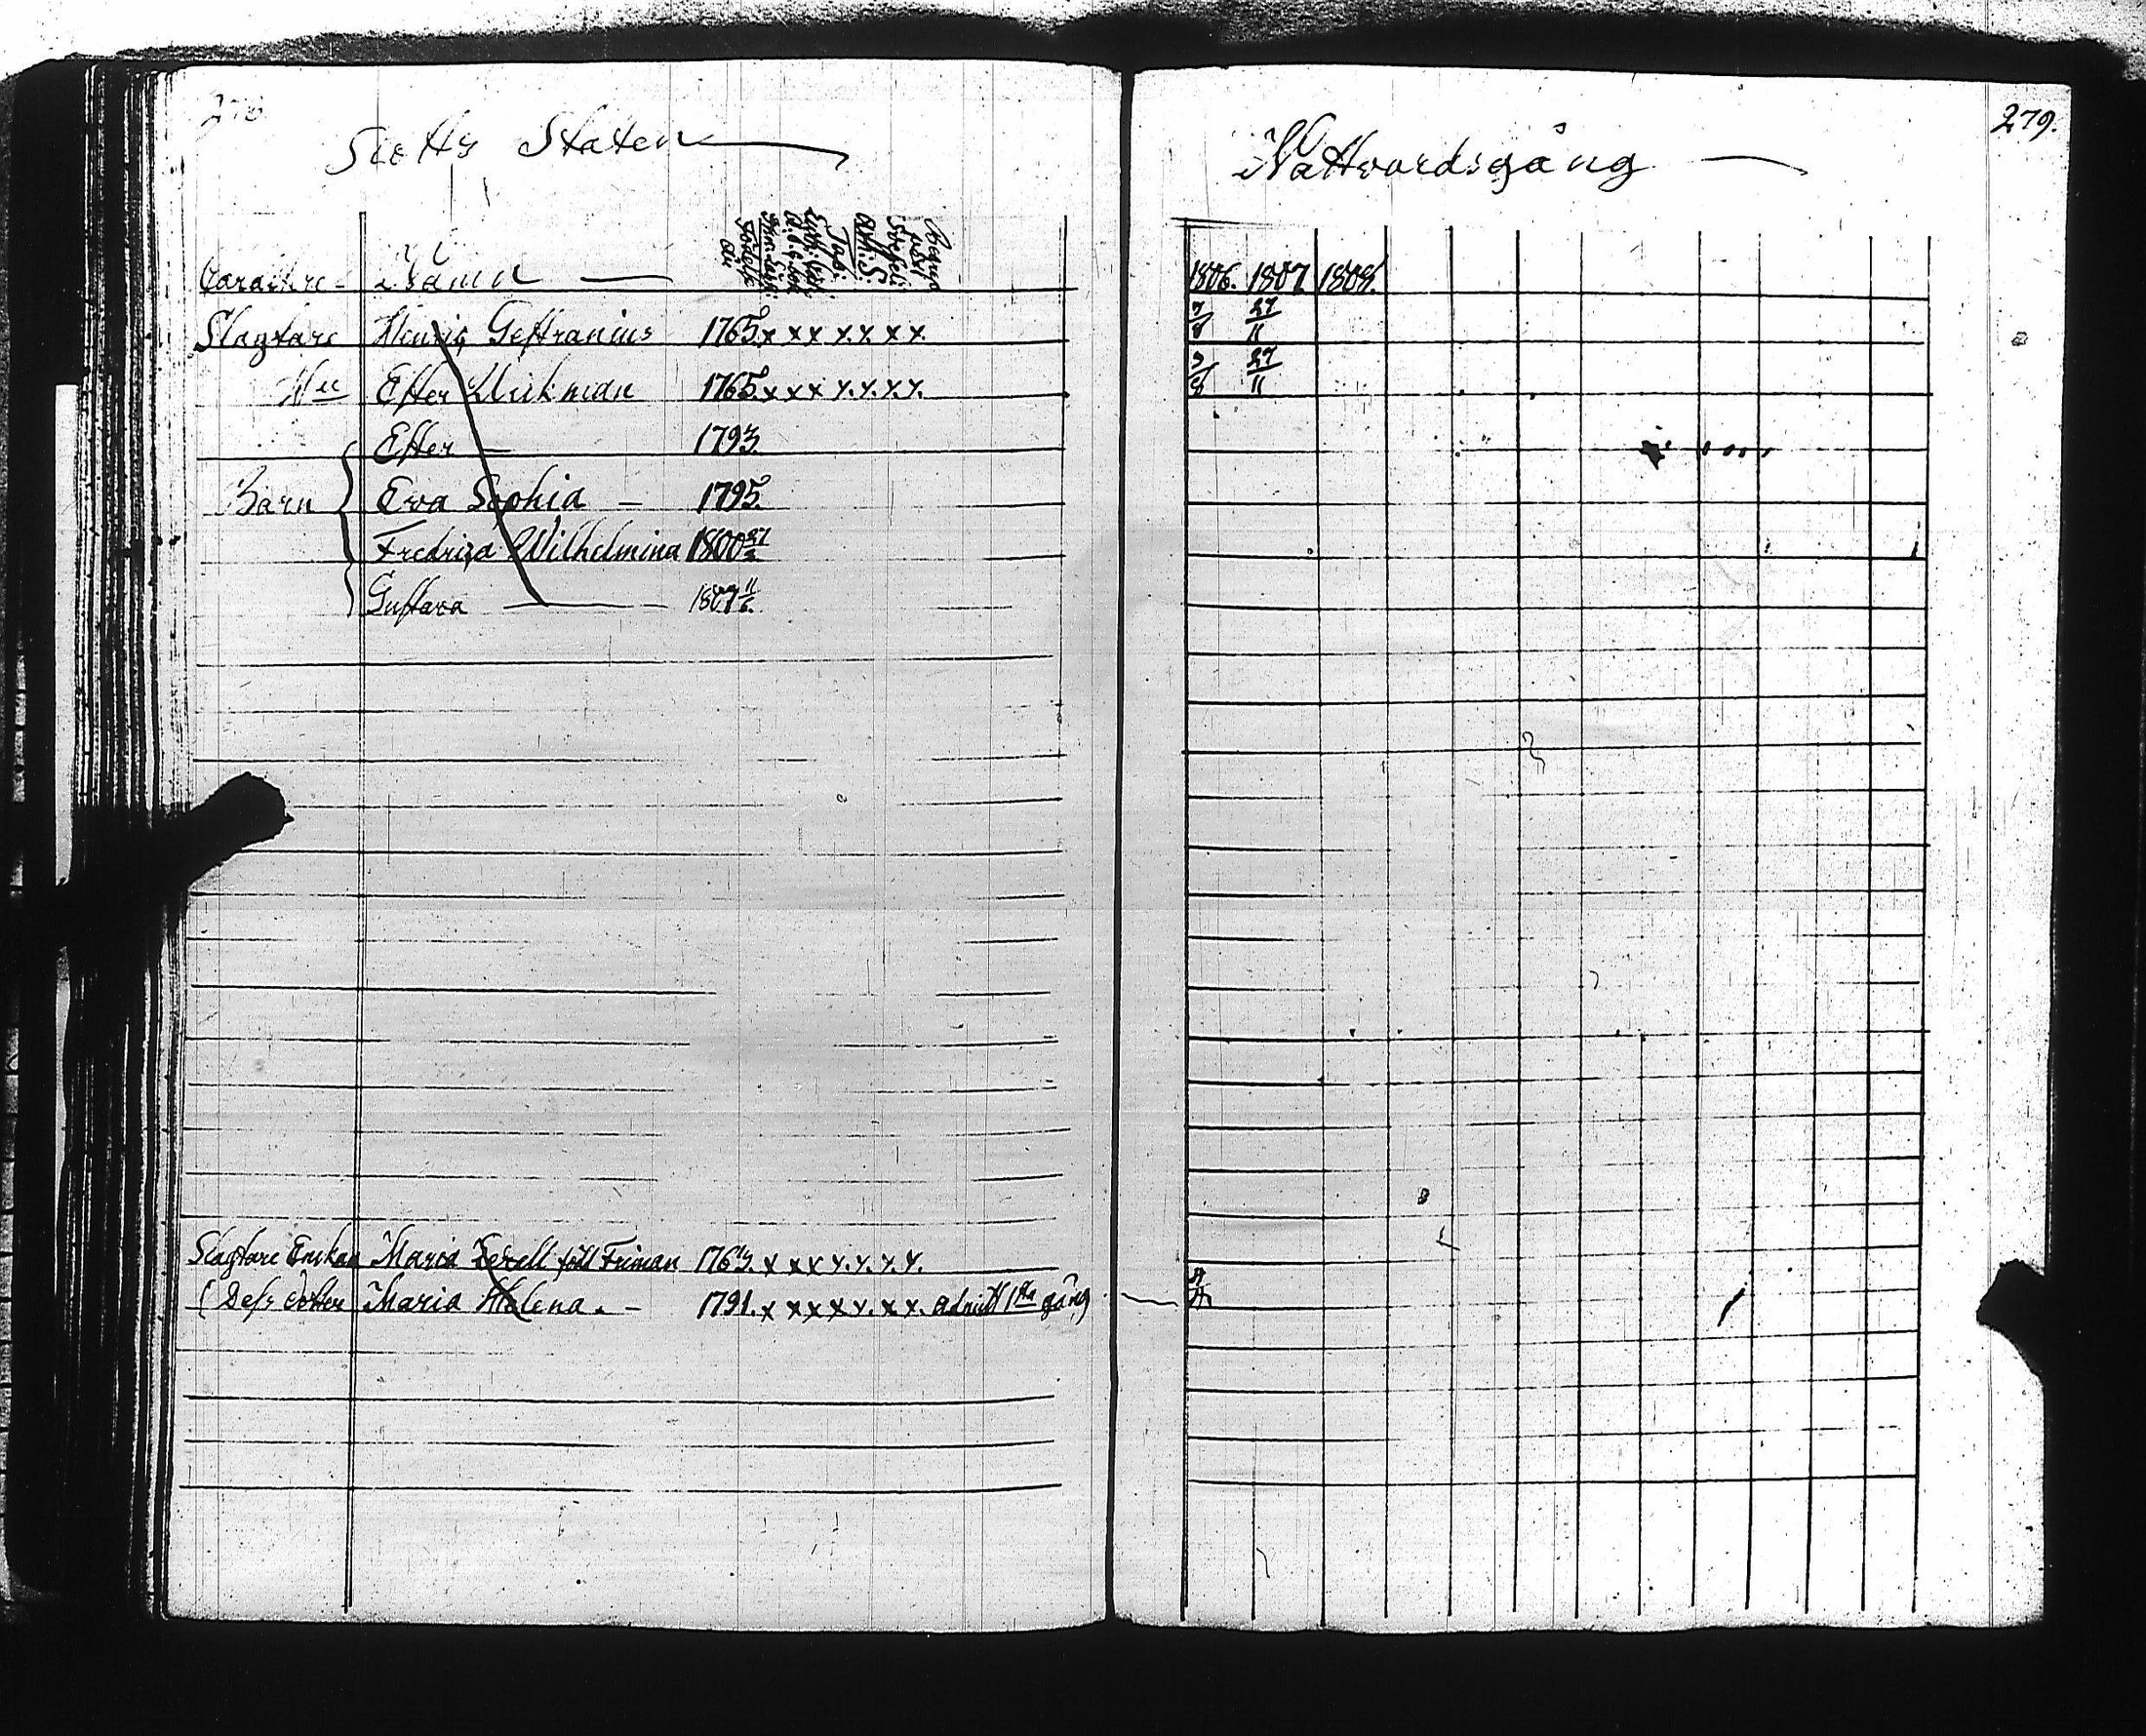 278
Slotts Staten
Caractere Namn
Födelse
år
Slagtare Henric Gestranius 1765. x x x x x x x
H:u Ester Wikman 1765. x x x x. x. x. x.
Ester 1793.
Barn Eva Sophia 1795.
Fredrica Wilhelmina 1800 27/2
Gustava 1807 11/6.
Slagtare Enkan Maria född Friman 1763. x x x x. x. x. x.
Dess dotter Maria Helena. 1791. x x x x x. x x. admitt 1sta gång
279.
Nattvardsgång
1806. 1807 1808.
27/11
27/11